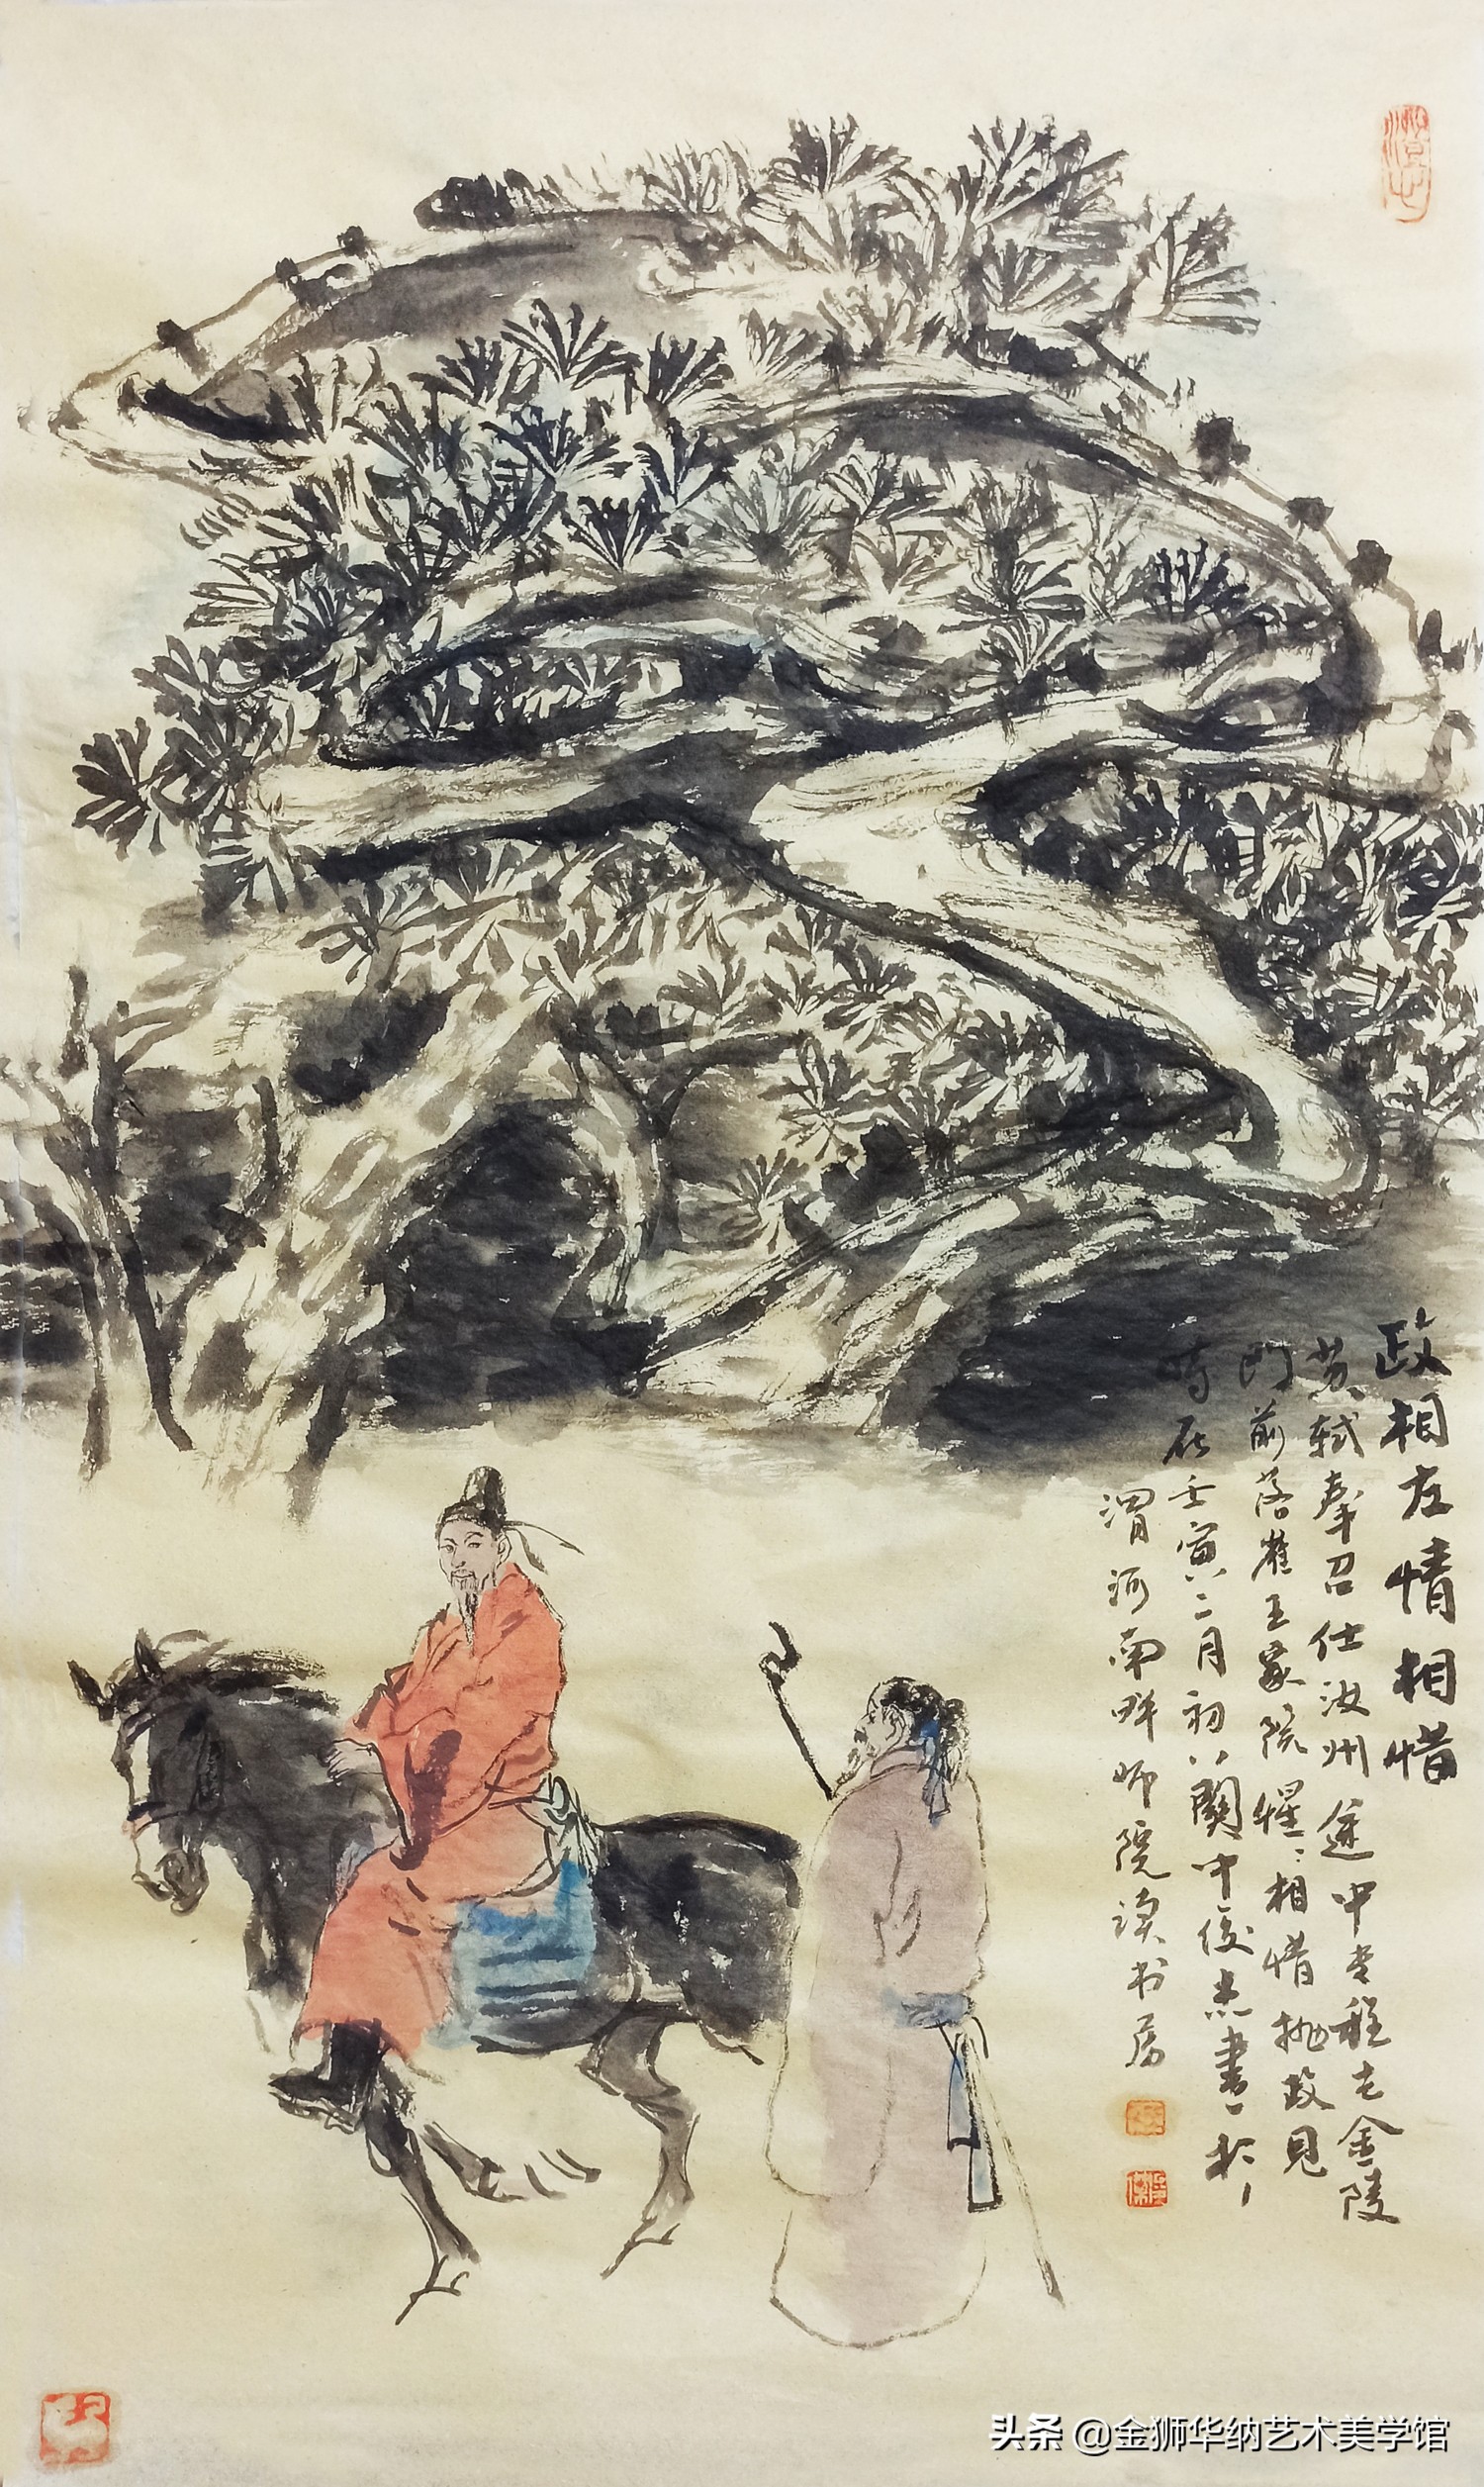 政相左情相惜
苏轼奉召仕汝州途中专程去金陵
门前落雀王家院惺:相惜抛政见
时在壬寅二月初八关中俊杰书于
渭河南畔师院读书房
头条 @金狮华纳艺术美学馆